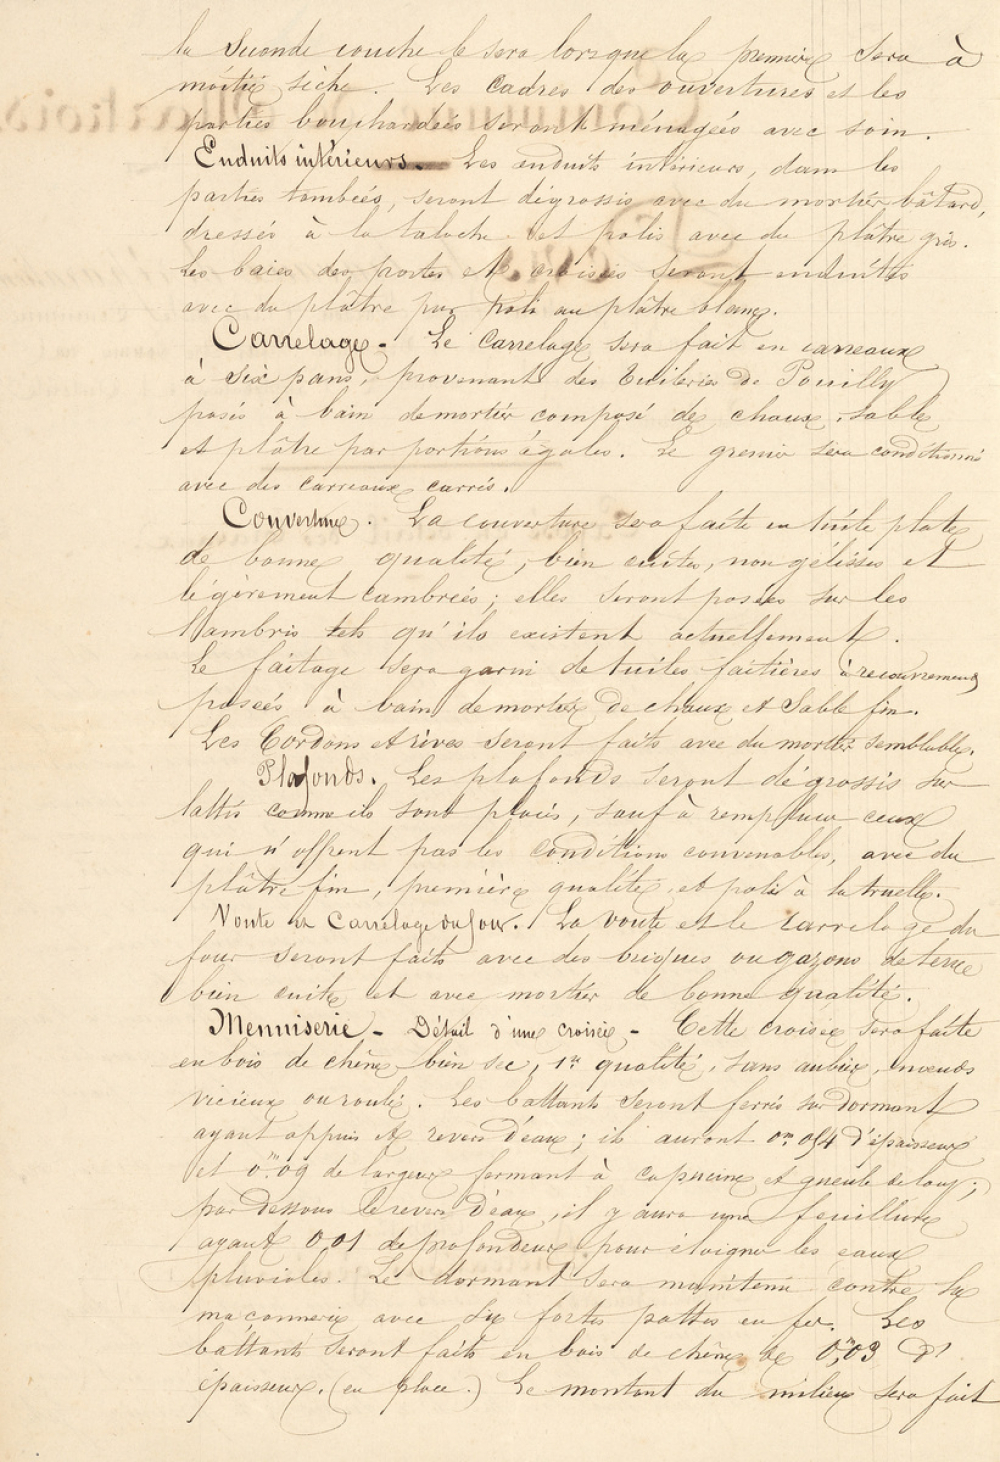 la seconde couche le sera lorsque la première sera à
moitié sèche. Les cadres des ouvertures et les
parties bouchardées seront ménagées avec soin.
Enduits intérieurs. Les enduits intérieurs, dans les
parties tombées, seront dégrossis avec du mortier bâtard,
dressés à la taloche et polis avec du plâtre gris.
Les baies des portes et croisées seront enduites
avec du plâtre pur poli au plâtre blanc.
Carrelage - Le carrelage sera fait en carreaux
à six pans, provenant des tuileries de Pouilly
posés à bain de mortier composé de chaux, sable
et plâtre par portions égales. Le grenier sera conditionné
avec des carreaux carrés.
Couverture. La couverture sera faite en tuile plate
de bonne qualité, bien cuites, non gélisses et
légèrement cambrées; elles seront posées sur les
lambris tels qu'ils existent actuellement.
Le faîtage sera garni de tuiles faîtières à recouvrement
posées à bain de mortier de chaux et sable fin.
Les Cordons et rives seront faits avec du mortier semblable.
Plafonds. Les plafonds seront dégrossis sur
lattis comme ils sont placés, sauf à remplacer ceux
qui n'offrent pas les conditions convenables, avec du
plâtre fin, première qualité, et polis à la truelle.
Voute et Carrelage du four. La voute et le carrelage du
four seront faits avec des briques ou gazons de terre
bien cuite et avec mortier de bonne qualité.
Menuiserie - Détail d'une croisée - Cette croisée sera faite
en bois de chêne bien sec, 1re qualité, sans aubier, ni nœuds
vicieux ou roulis. Les battants seront ferrés sur dormant
ayant appuis et revers d'eau; ils auront 0m,054 d'épaisseur
et 0m09 de largeur formant à capucine et gueule de loup;
par dessous le revers d'eau, il y aura une feuillure
ayant 0,01 de profondeur pour éloigner les eaux
pluviales. Le dormant sera maintenu contre la
maçonnerie avec six fortes pattes en fer. Les
battants seront faits en bois de chêne de 0m,03 d'
épaisseur. (en place.) Le montant du milieu sera fait